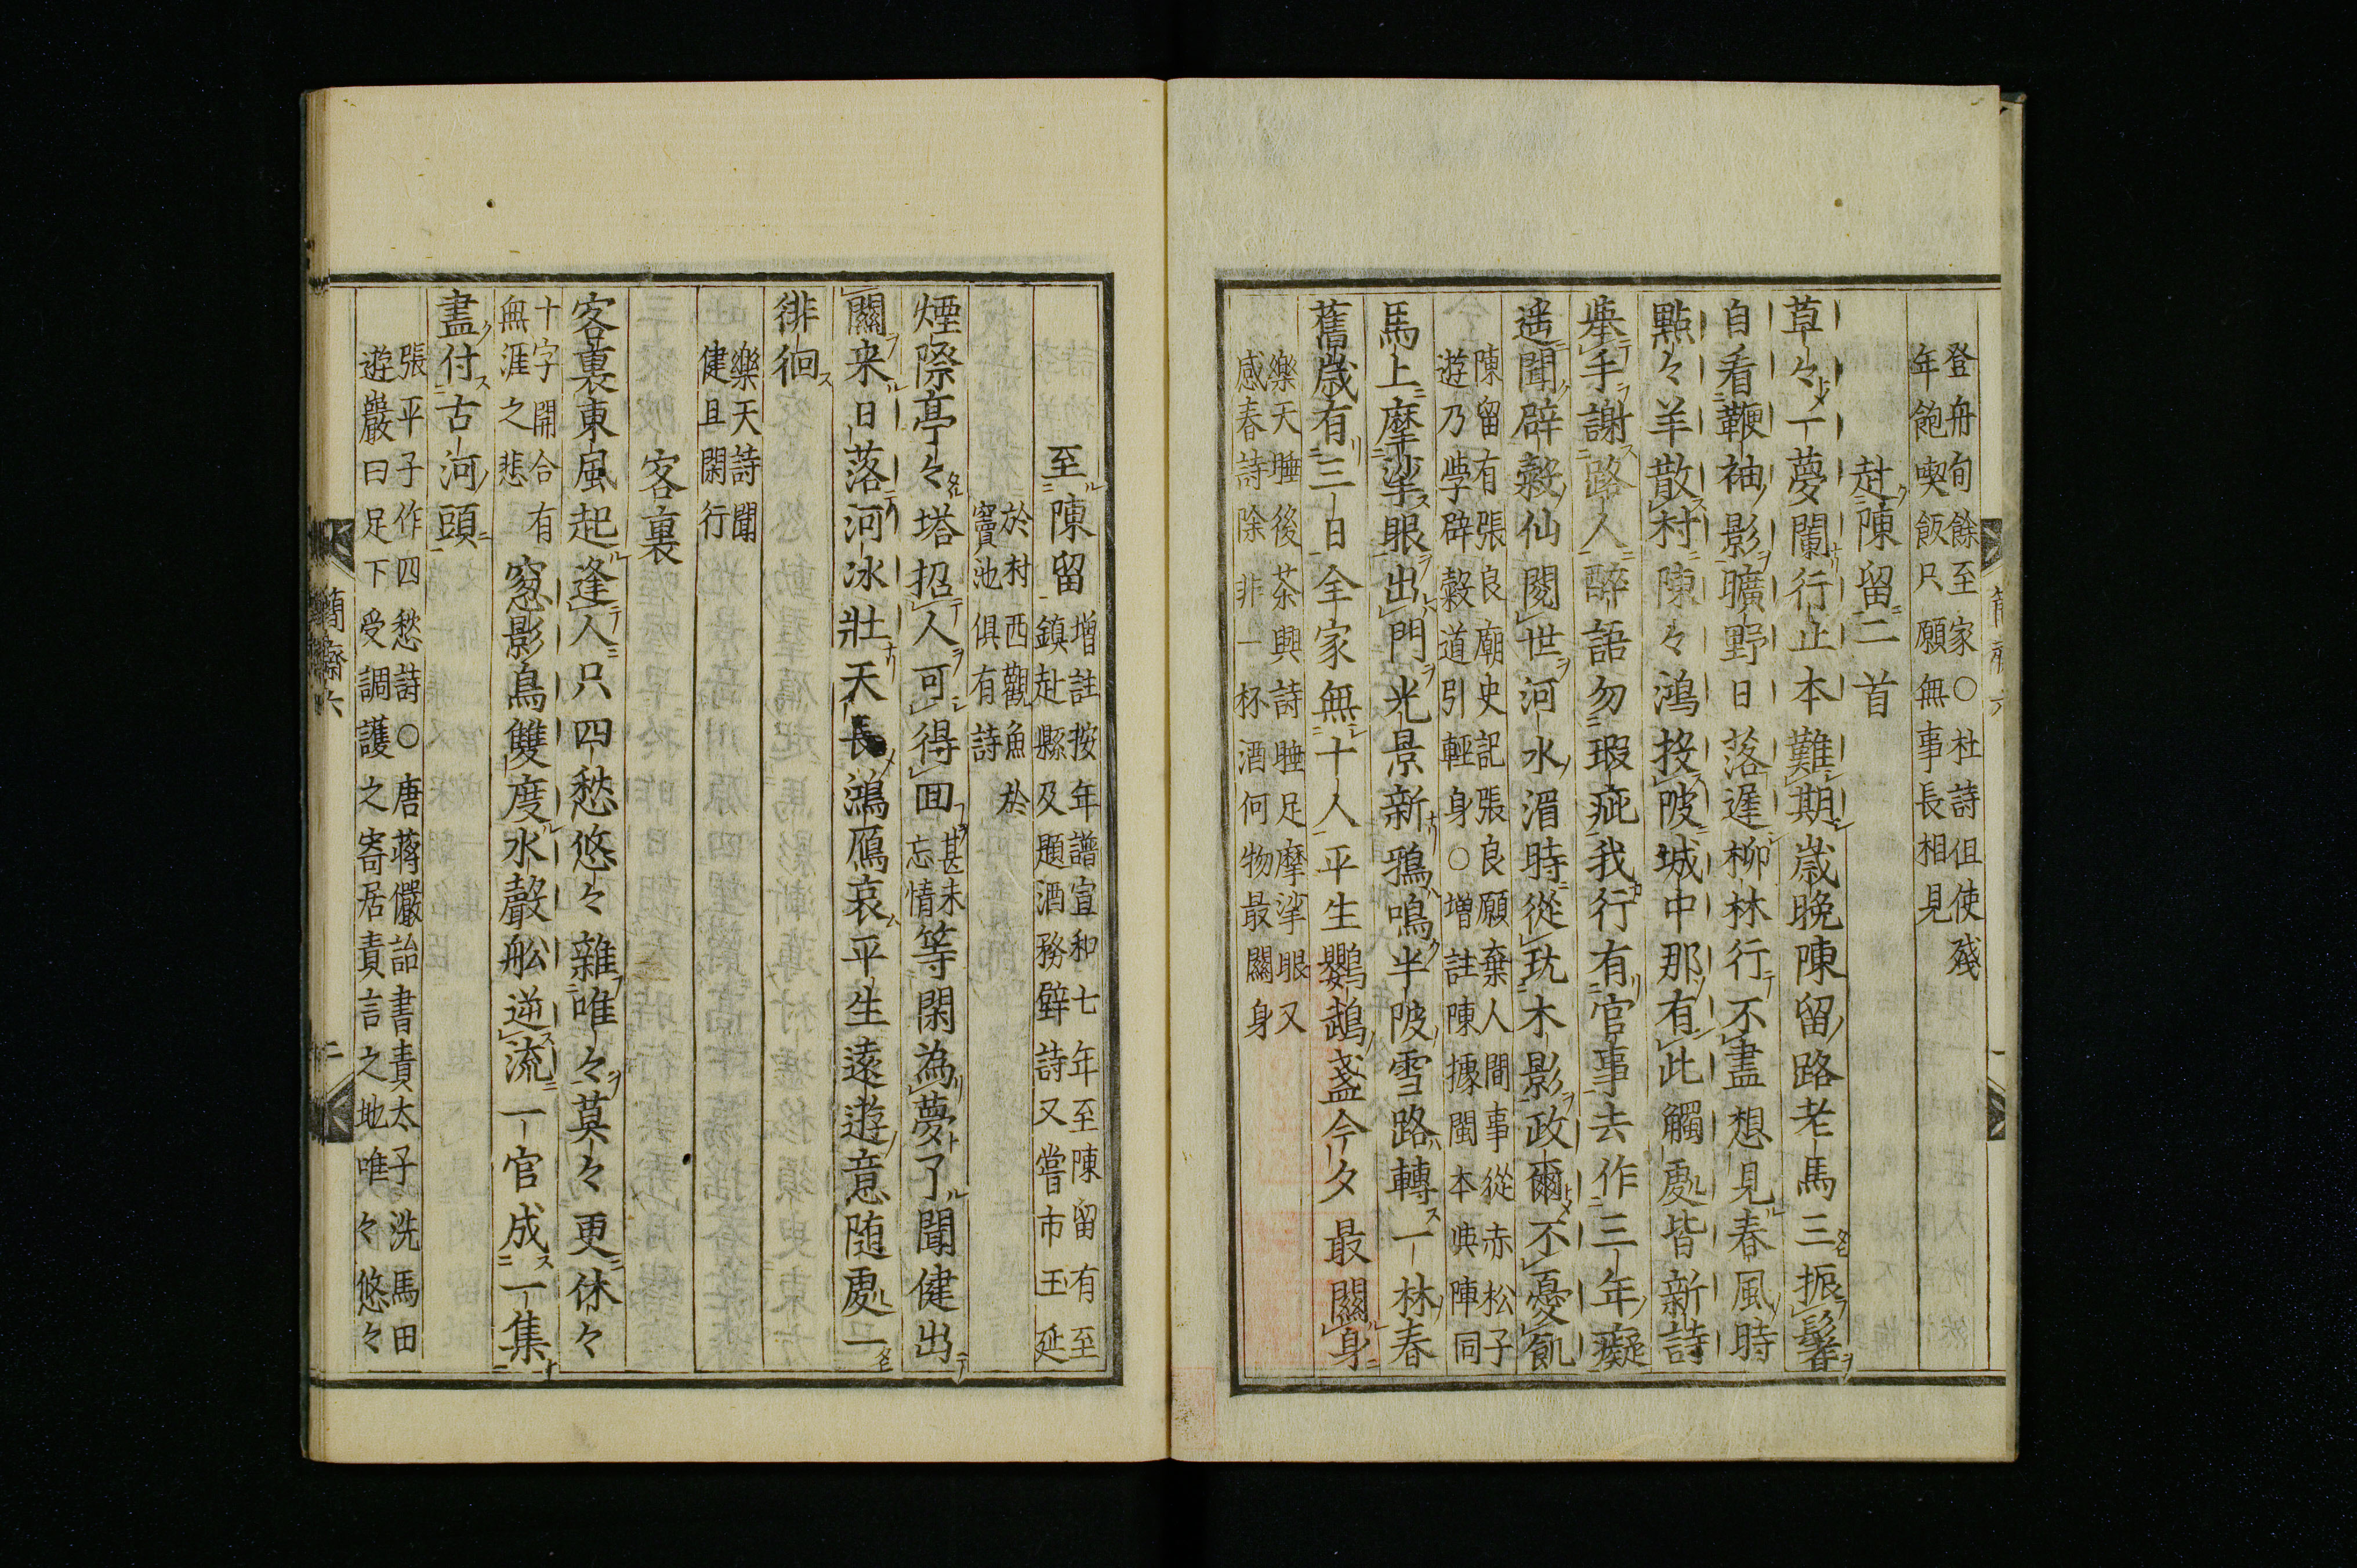 登舟旬餘至家〇杜詩但使殘
年飽喫飯只願無事長相見
赴陳留二首
草々一夢闌行止本難期歲晚陳留路老馬三振鬐
自看鞭袖影曠野日落遲柳林行不盡想見春風時
點々羊散村陳々鴻投陂城中那有此觸處皆新詩
舉手謝路人醉語勿瑕疵我行有官事去作三年癡
遥聞辟穀仙閱世河水湄時從玩木影政爾不憂飢
陳留有張良廟史記張良願棄人間事從赤松子
遊乃學辟穀道引輕身〇增註陳據閩本與陣同
馬上摩挲眼出門光景新鴉鳴半陂雪路轉一林春
舊歲有三日全家無十人平生鸚鵡盞今夕最關身
樂天睡後茶興詩睡足摩挲眼又
感春詩除非一杯酒何物最關身
至陳留
增註按年譜宣和七年至陳留有至
鎮赴縣及題酒務壁詩又嘗市玉延
於村西觀魚於
竇池俱有詩
煙際亭々塔招人可得回
甚未
忘情
等閑為夢了聞健出
關来日落河冰壯天長鴻鴈哀平生遠遊意随處一
徘徊
樂天詩聞
健且閑行
客裏
客裏東風起逢人只四愁悠々雜唯々莫々更休々
十字開合有
無涯之悲
窓影鳥雙度水聲舩逆流一官成一集
盡付古河頭
張平子作四愁詩〇唐蔣儼詒書責太子洗馬田
遊巖曰足下受調護之寄居責言之地唯々悠々
簡齋六
二